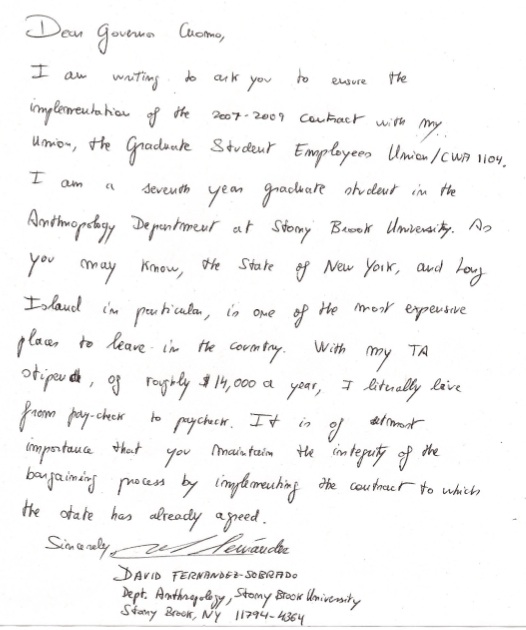 Dear Governor Cuomo,
I am writing to ask you to ensure the
implementation of the 2007-2009 contract with my
Union, the Graduate Student Employees Union/CWA 1104.
I am a seventh year graduate student in the
Anthropology Department at Stony Brook University. As
you may know, the State of New York, and Long
Island in particular, is one of the most expensive
places to leave in the country. With my TA
stipend, of roughly $14,000 a year, I literally live
from pay-check to paycheck. It is of utmost
importance that you maintain the integrity of the
bargaining process by implementing the contract to which
the state has already agreed.
Sincerely
DAVID FERNANDEZ-SOBRADO
Dept. Anthropology, Stony Brook University
Stony Brook, NY 11794-4364